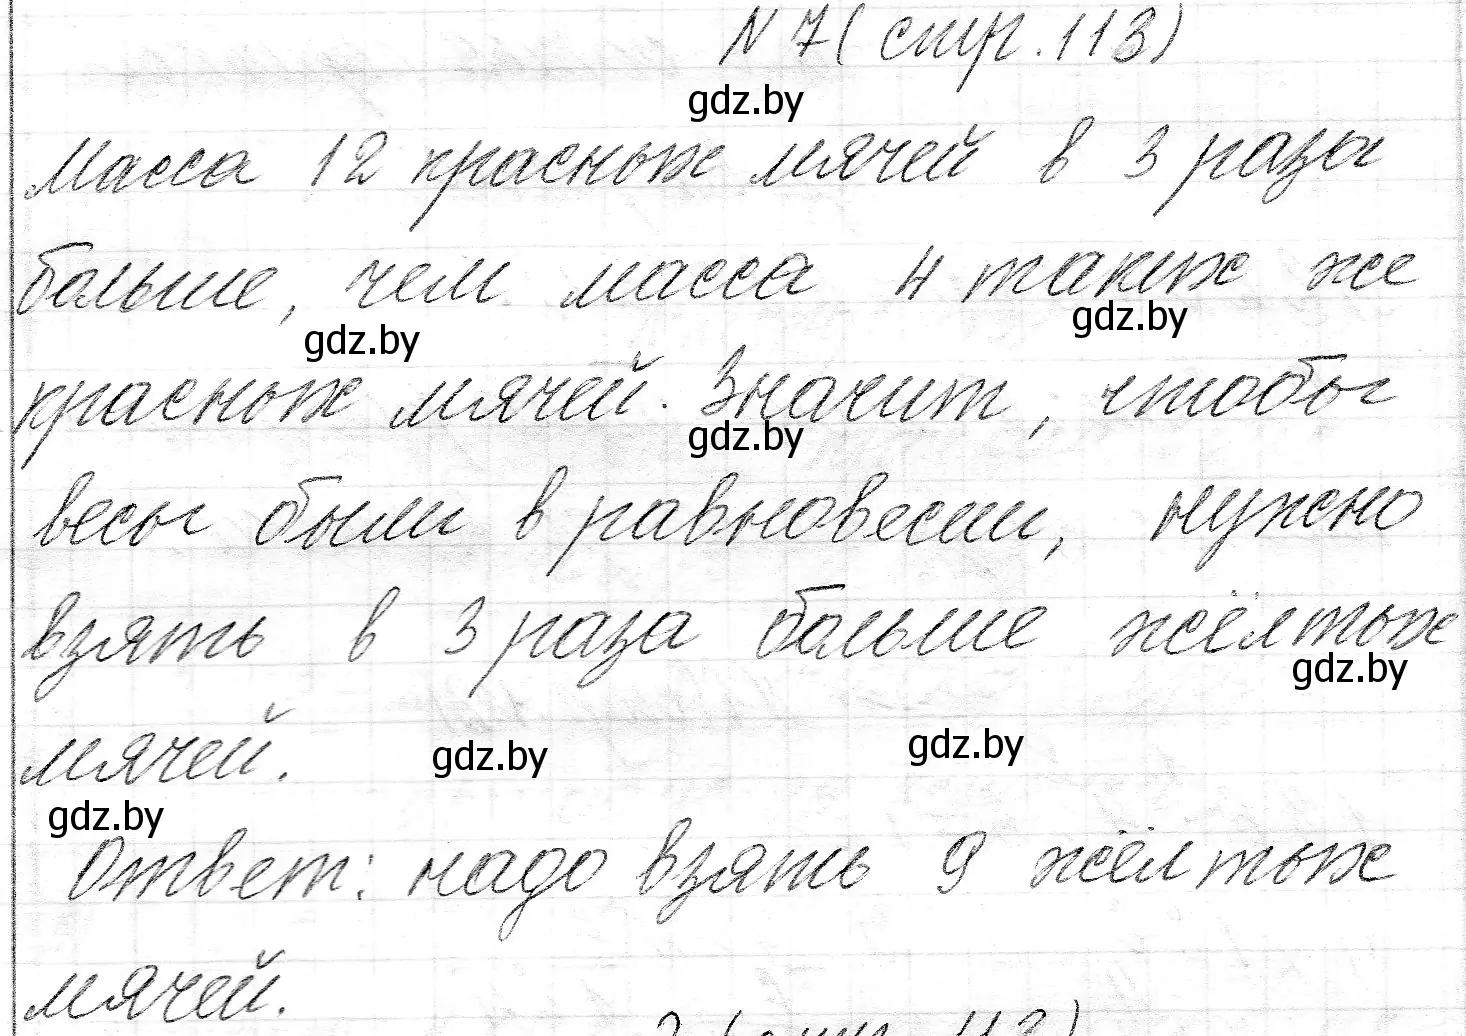 N 7 ( стр. 113)
gdz.by
Масса 12 красных мячей в 3 раза
больше, чем масса 4 таких же
gdz.by
gdz.by
красных мячей. Значит, чтобы
gdz.by
весы были в равновесии, нужно
взять в 3 раза больше жёлтых
gdz.by
мячей.
gdz.by
gdz.by
gdz.by
Ответ: надо взять 9 жёлтых
мячей.